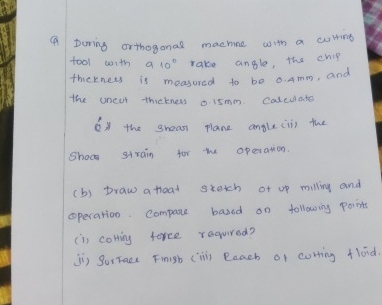 Q During orthogonal machine with a cutting
tool with a 10° rake angle, the chip
thickness is measured to be 0.4mm, and
the uncut thickness 0.15mm. Calculate
the shear plane angle (ii) the
Shear strain for the operation.
(b) Draw a neat sketch of up milling and
operation. Compare based on following points
(i) cutting force required?
(ii) Surface Finish (iii) Reach of cutting fluid.